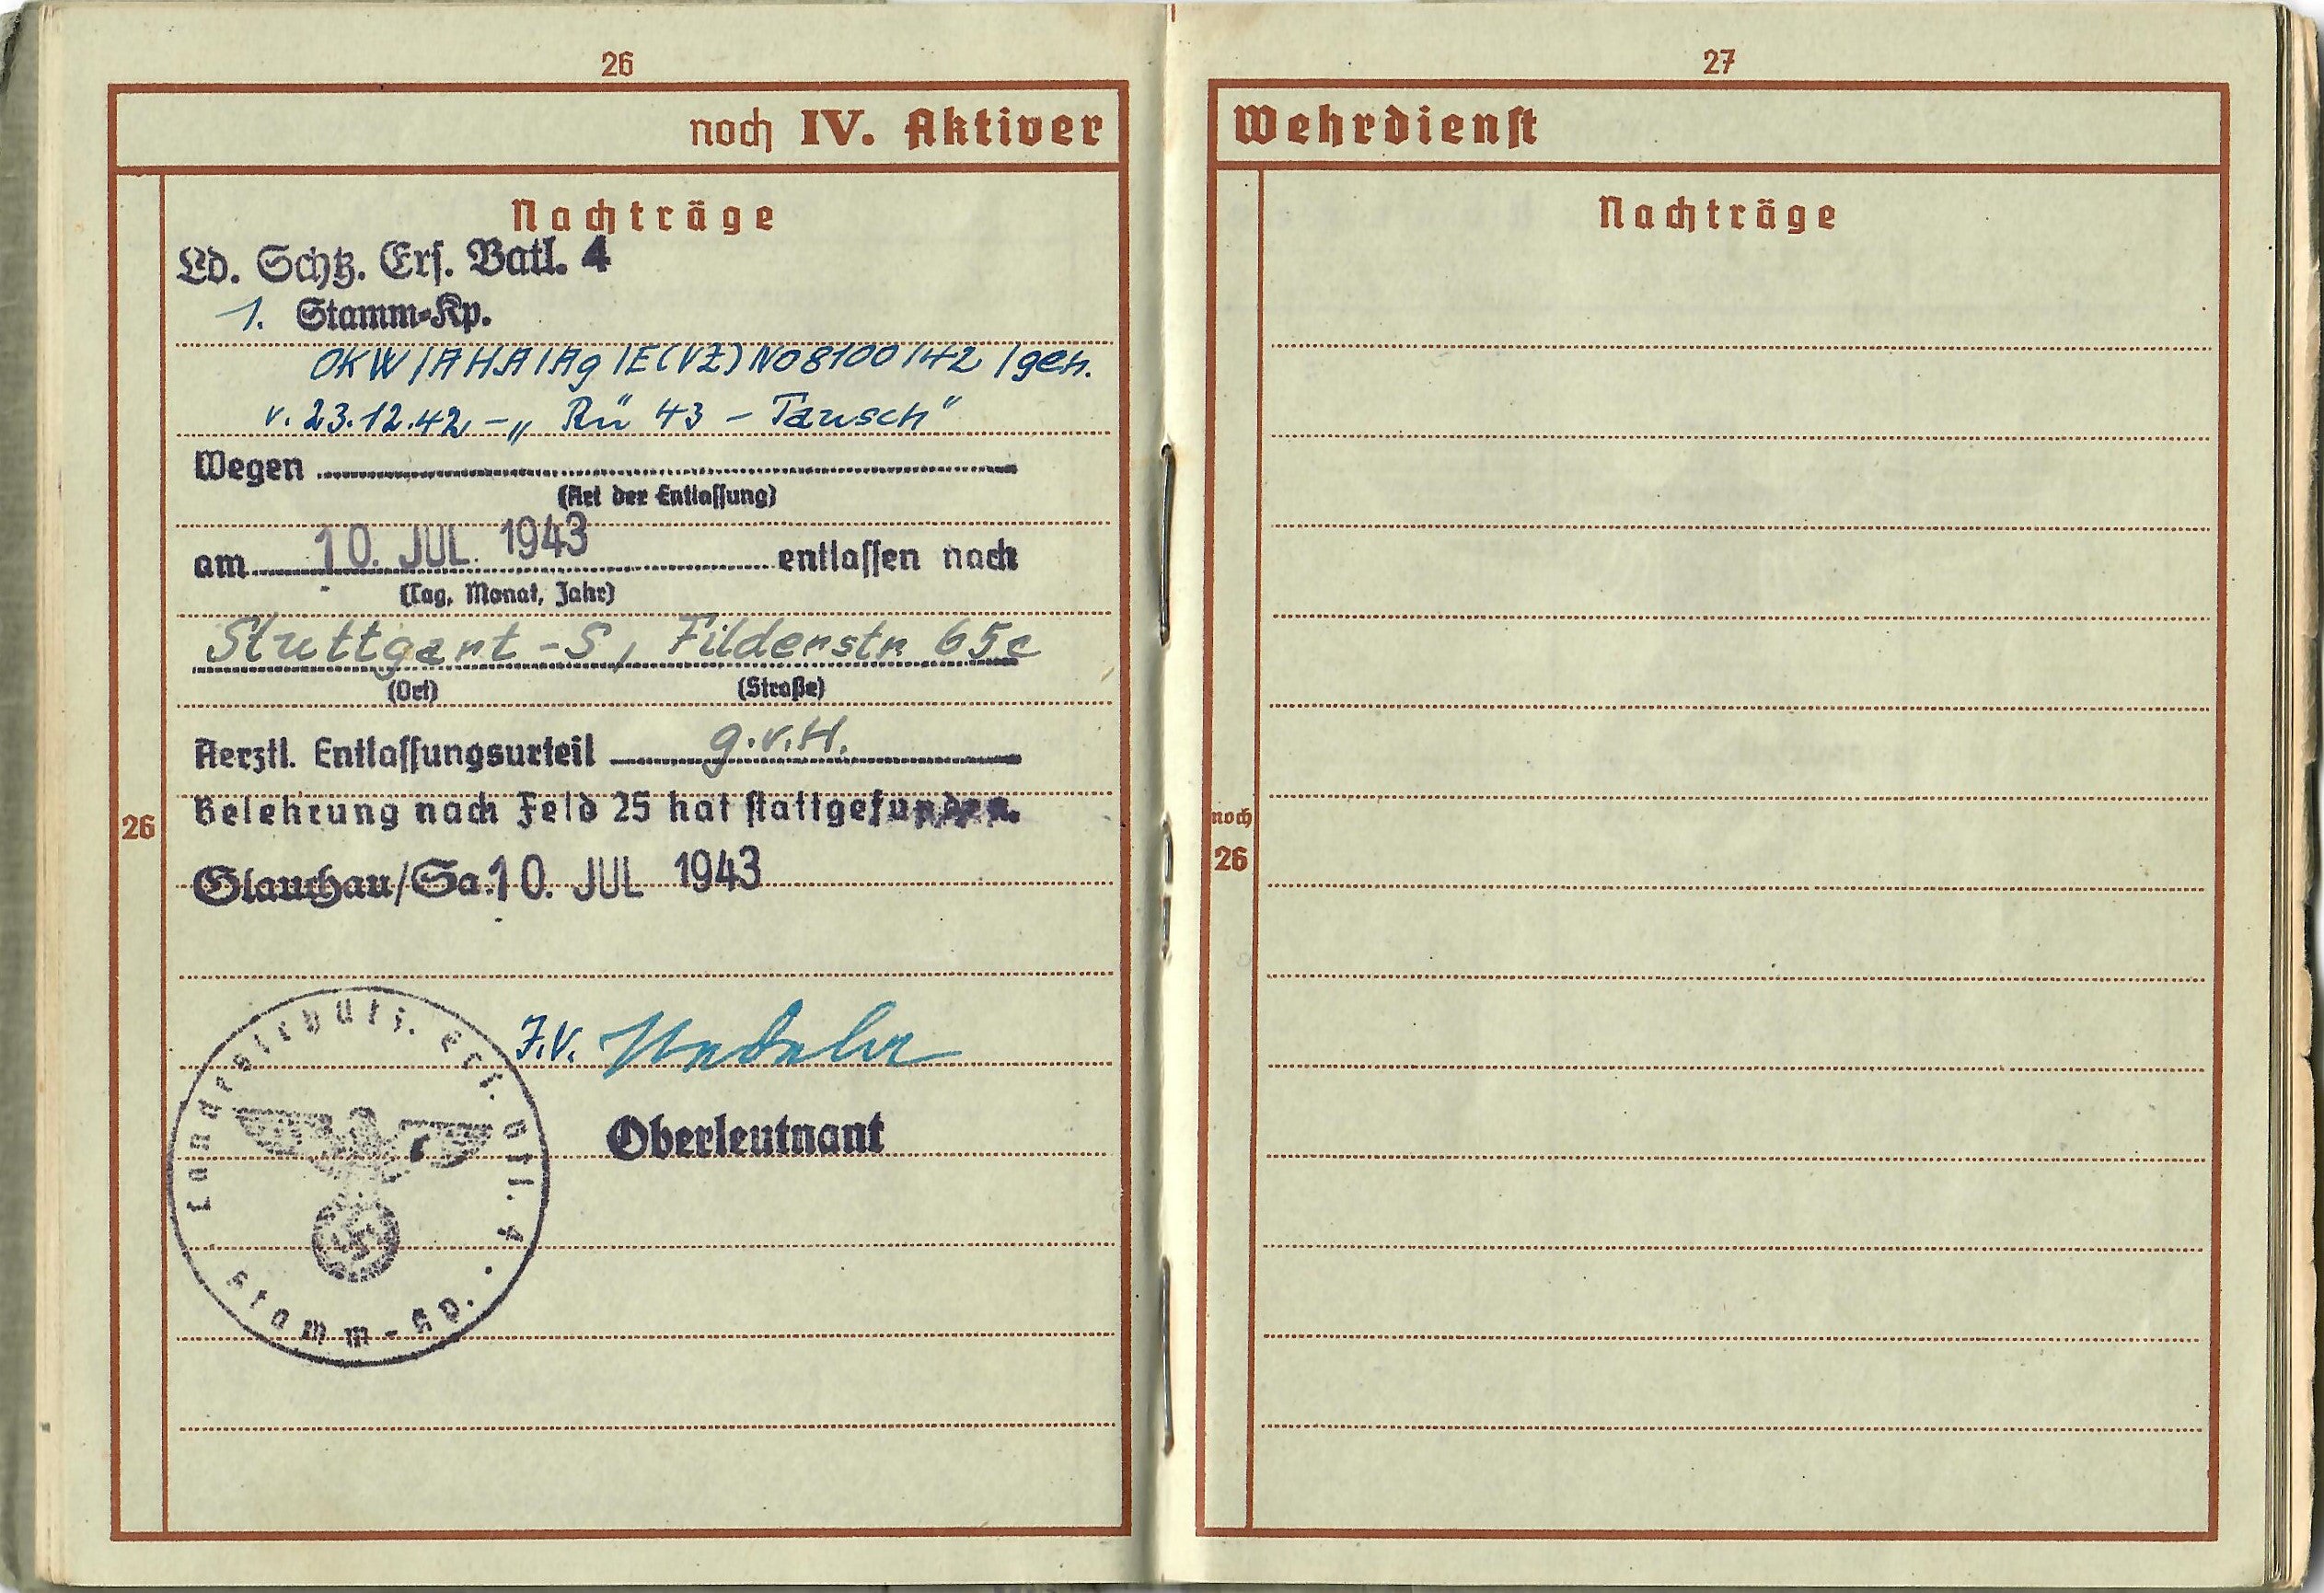 26
noch IV. Aktiver
Nachträge
Ld. Schtz. Ers. Batl. 4
1. Stamm-Kp.
OKW/AHA/Ag/E(VZ)No8100/42/geh.
v. 23.12.42 - „Rü 43 - Tausch"
Wegen
(Art der Entlassung)
am 10. JUL. 1943 entlassen nach
(Tag, Monat, Jahr)
Stuttgart-S, Filderstr 65c
(Ort) (Straße)
Aerztl. Entlassungsurteil g.v.H.
Belehrung nach Feld 25 hat stattgefunden.
26
Glauchau/Sa. 10. JUL 1943
J.V.
Oberleutnant
Landesschütz. Ers. Btl. 4
Stamm-Kp.
27
Wehrdienst
Nachträge
noch
26